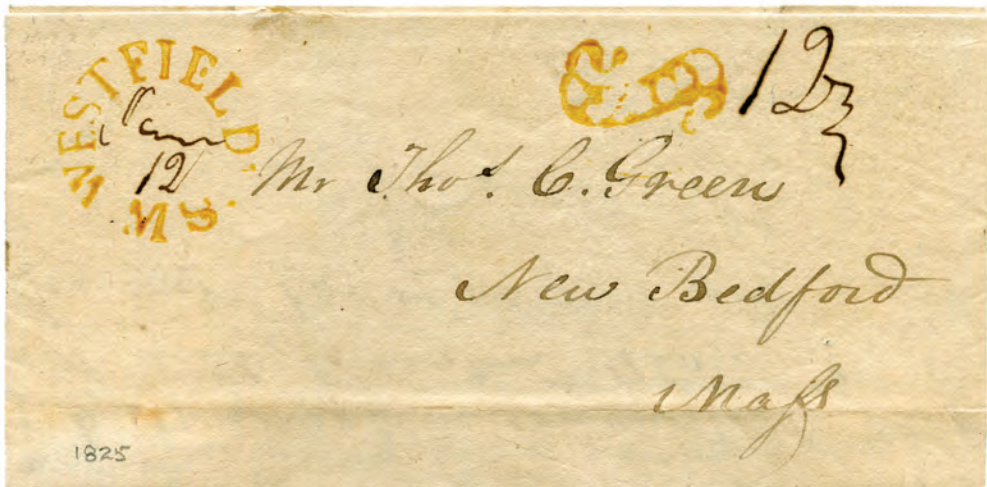 WESTFIELD. MS.
Jan
12
12½
Mr Thos. C. Green
New Bedford
Mass
1825